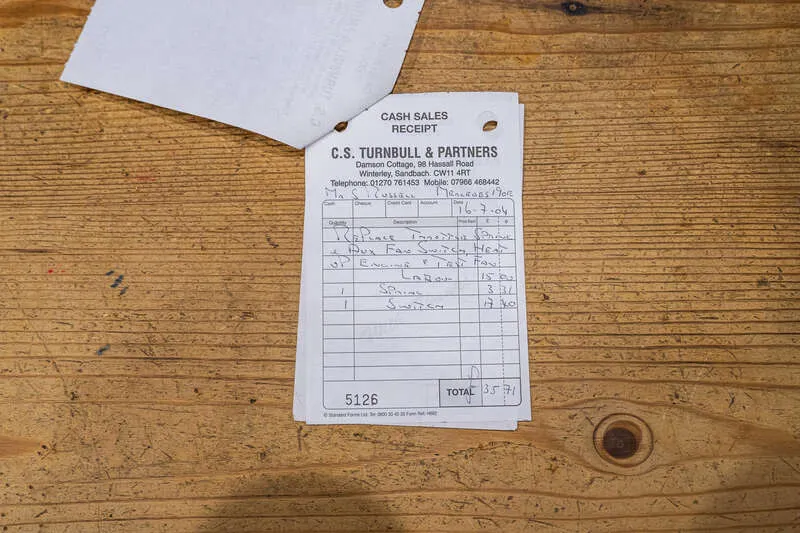 CASH SALES
RECEIPT
C.S. TURNBULL & PARTNERS
Damson Cottage, 98 Hassall Road
Winterley, Sandbach. CW11 4RT
Telephone: 01270 761453 Mobile: 07966 468442
Mr S Russell Mercedes 190E
Cash Cheque Credit Card Account Date 16-7-04
Quantity Description Price Each £ p
Replace Throttle Spring
& Aux Fan Switch, Heat
up Engine & Test Fan
Labour 15 00
1 Spring 3 31
1 Switch 17 40
5126 TOTAL £ 35 71
© Standard Forms Ltd. Tel: 0800 30 40 20 Form Ref: